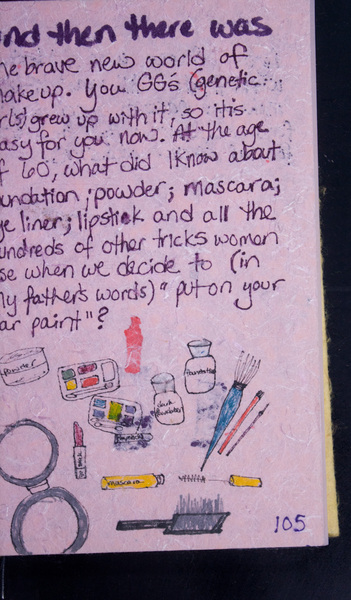 and then there was
the brave new world of
makeup. You GG's (genetic
girls) grew up with it, so it is
easy for you now. At the age
of 60, what did I know about
foundation; powder; mascara;
eye liner; lipstick and all the
hundreds of other tricks women
use when we decide to (in
my father's words) "put on your
war paint"?
powder
foundation
lipstick
mascara
105